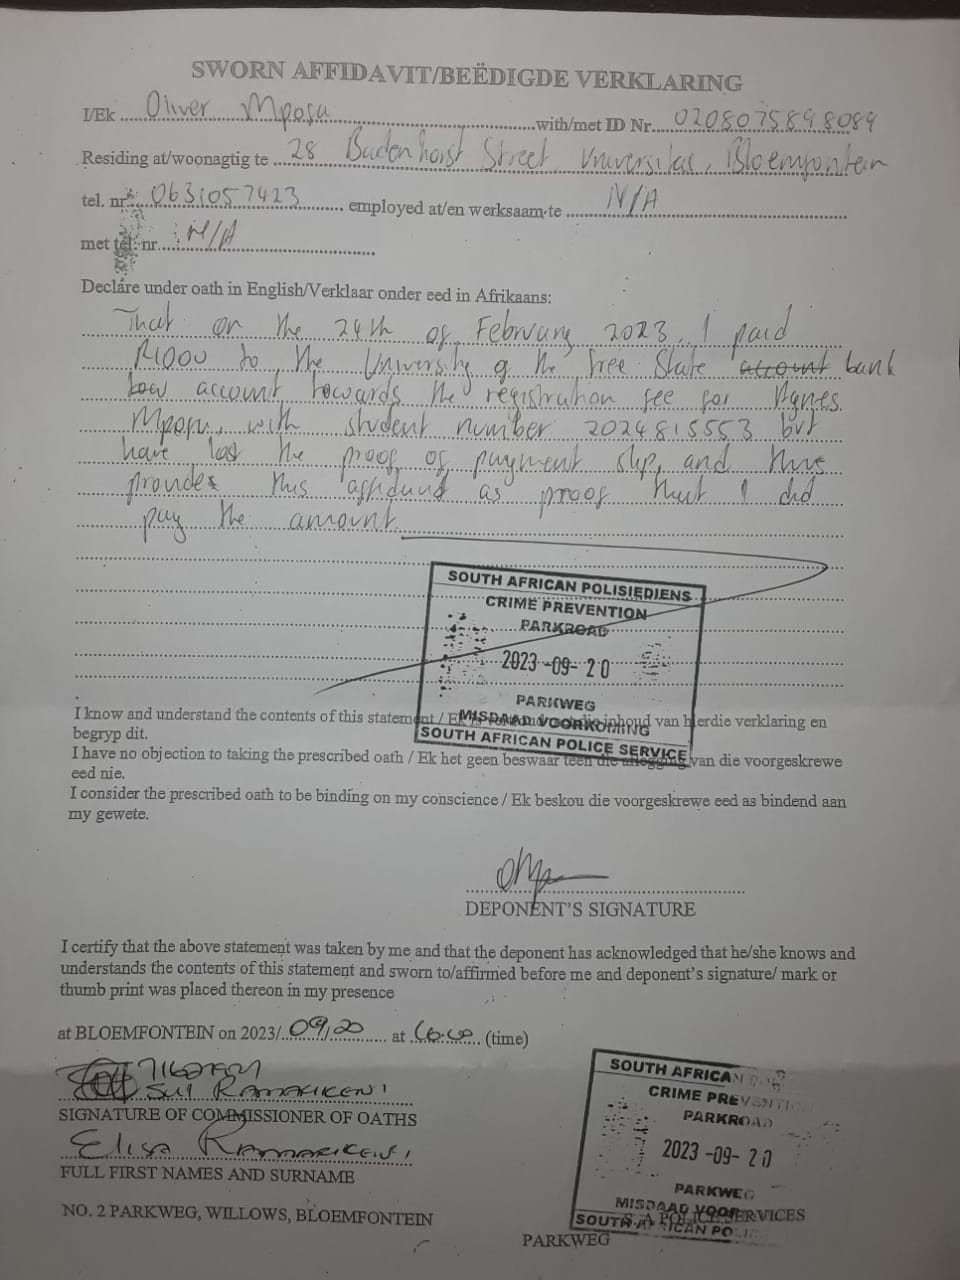 SWORN AFFIDAVIT/BEËDIGDE VERKLARING
I/Ek Oliver Mposu with/met ID Nr. 0208075898089
Residing at/woonagtig te 28 Badenhorst Street, Universitas, Bloemfontein
tel. nr. 0631057423 employed at/en werksaam te N/A
met tel. nr. N/A
Declare under oath in English/Verklaar onder eed in Afrikaans:
That on the 24th of February 2023, I paid
R1000 to the University of the Free State account bank
account towards the registration fee for Agnes
Mposu, with student number 2024815553 but
have lost the proof of payment slip, and thus
provides this affidavit as proof that I did
pay the amount.
SOUTH AFRICAN POLISIEDIENS
CRIME PREVENTION
PARKROAD
2023-09-20
PARKWEG
MISDAAD VOORKOMING
SOUTH AFRICAN POLICE SERVICE
I know and understand the contents of this statement / Ek die inhoud van hierdie verklaring en
begryp dit.
I have no objection to taking the prescribed oath / Ek het geen beswaar teen die aflegging van die voorgeskrewe
eed nie.
I consider the prescribed oath to be binding on my conscience / Ek beskou die voorgeskrewe eed as bindend aan
my gewete.
DEPONENT'S SIGNATURE
I certify that the above statement was taken by me and that the deponent has acknowledged that he/she knows and
understands the contents of this statement and sworn to/affirmed before me and deponent's signature/ mark or
thumb print was placed thereon in my presence
at BLOEMFONTEIN on 2023/ 09/20 at (time)
SIGNATURE OF COMMISSIONER OF OATHS
Elisa Ramarikeni
FULL FIRST NAMES AND SURNAME
NO. 2 PARKWEG, WILLOWS, BLOEMFONTEIN
SOUTH AFRICAN
CRIME PREVENTION
PARKROAD
2023-09-20
PARKWEG
MISDAAD VOOR
SOUTH AFRICAN
S.A POLICE SERVICES
PARKWEG